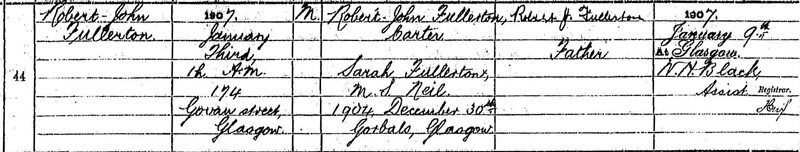 44
Robert John
Fullerton
1907
January
Third,
1h. A.M.
174
Govan street,
Glasgow
M.
Robert John Fullerton,
Carter
Sarah Fullerton,
M.S. Neil.
1904, December 30th
Gorbals, Glasgow.
Robert J. Fullerton
Father
1907.
January 9th
At Glasgow.
W.N. Black,
Assist Registrar.